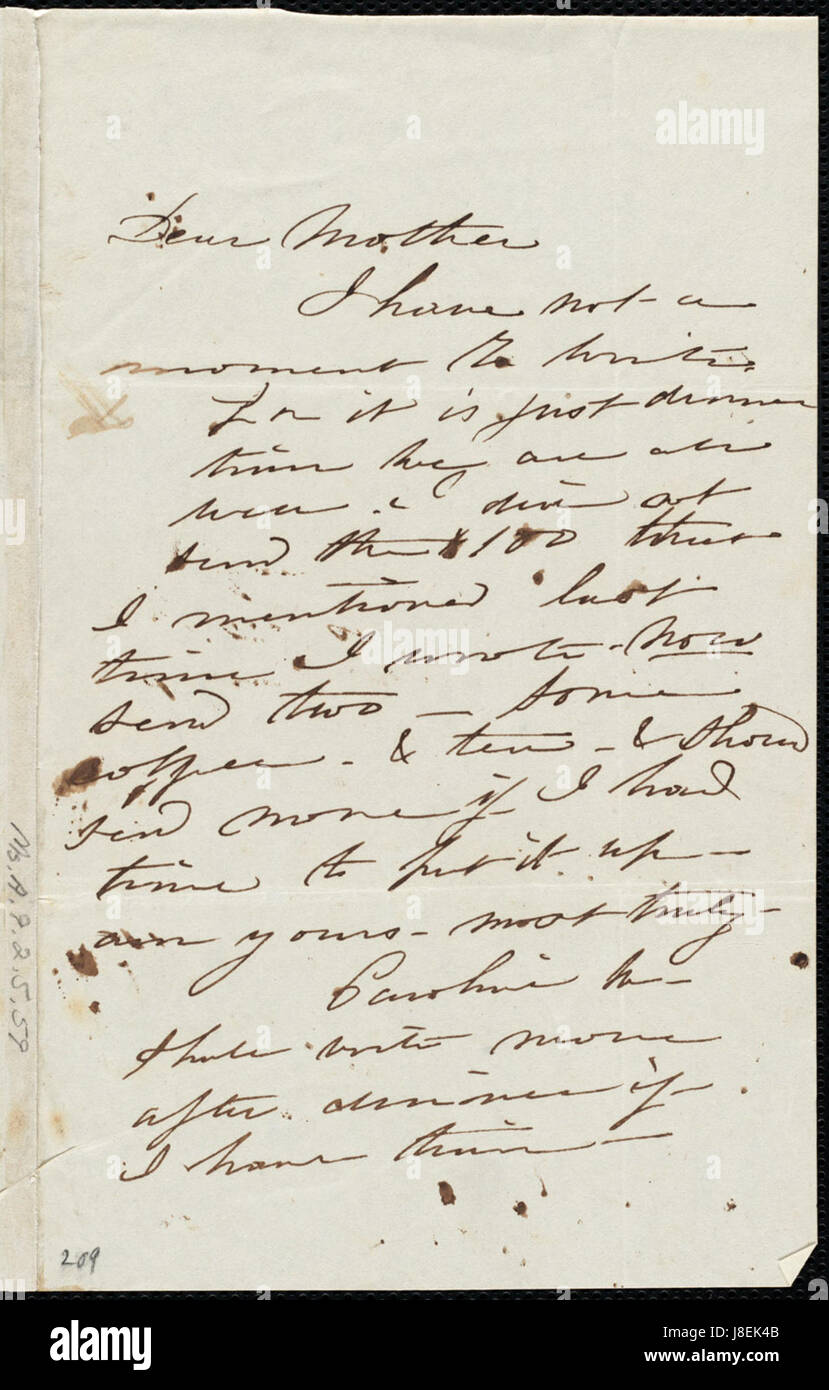 Dear Mother
I have not a
moment to write
for it is just dinner
time we are all
well. & did not
send the $100 that
I mentioned last
time I wrote - now
send two - some
coffee - & tea - & should
send more if I had
time to put it up -
am yours - most truly -
Caroline W -
Shall write more
after dinner if
I have time -
209
Ms.A.9.2.5.59
alamy
alamy
Image ID: J8EK4B
www.alamy.com